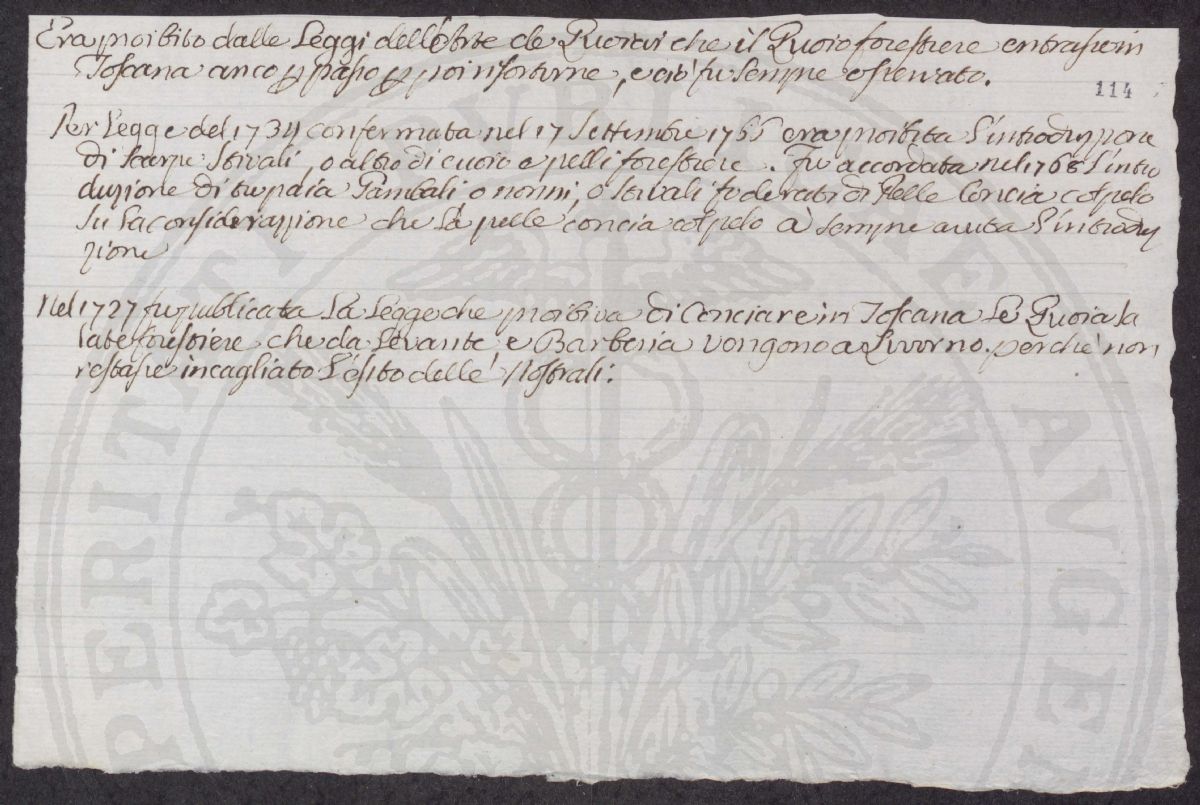 Era proibito dalle Leggi dell'Arte de Quoiai che il Quoio forestiere entrasse in
Toscana anco p passo p poi risortirne, e ciò fu sempre osservato.
114
Per Legge del 1734 confermata nel 17 Settembre 1755 era proibita l'introduzione
di scarpe Stivali, o altro di cuoio e pelli forestiere. Fù accordata nel 1768 l'intro
duzione di Gambali o nonni, o stivali foderati di Pelle Concia col pelo
su la considerazzione che la pelle concia col pelo à sempre avuta l'introdu
zione
Nel 1727 fu publicata la Legge che proibiva di Conciare in Toscana le Quoia sa
late forestiere che da Levante e Barberia vengono a Livorno perche non
restasse incagliato l'esito delle Nostrali.
PERITI AVGE